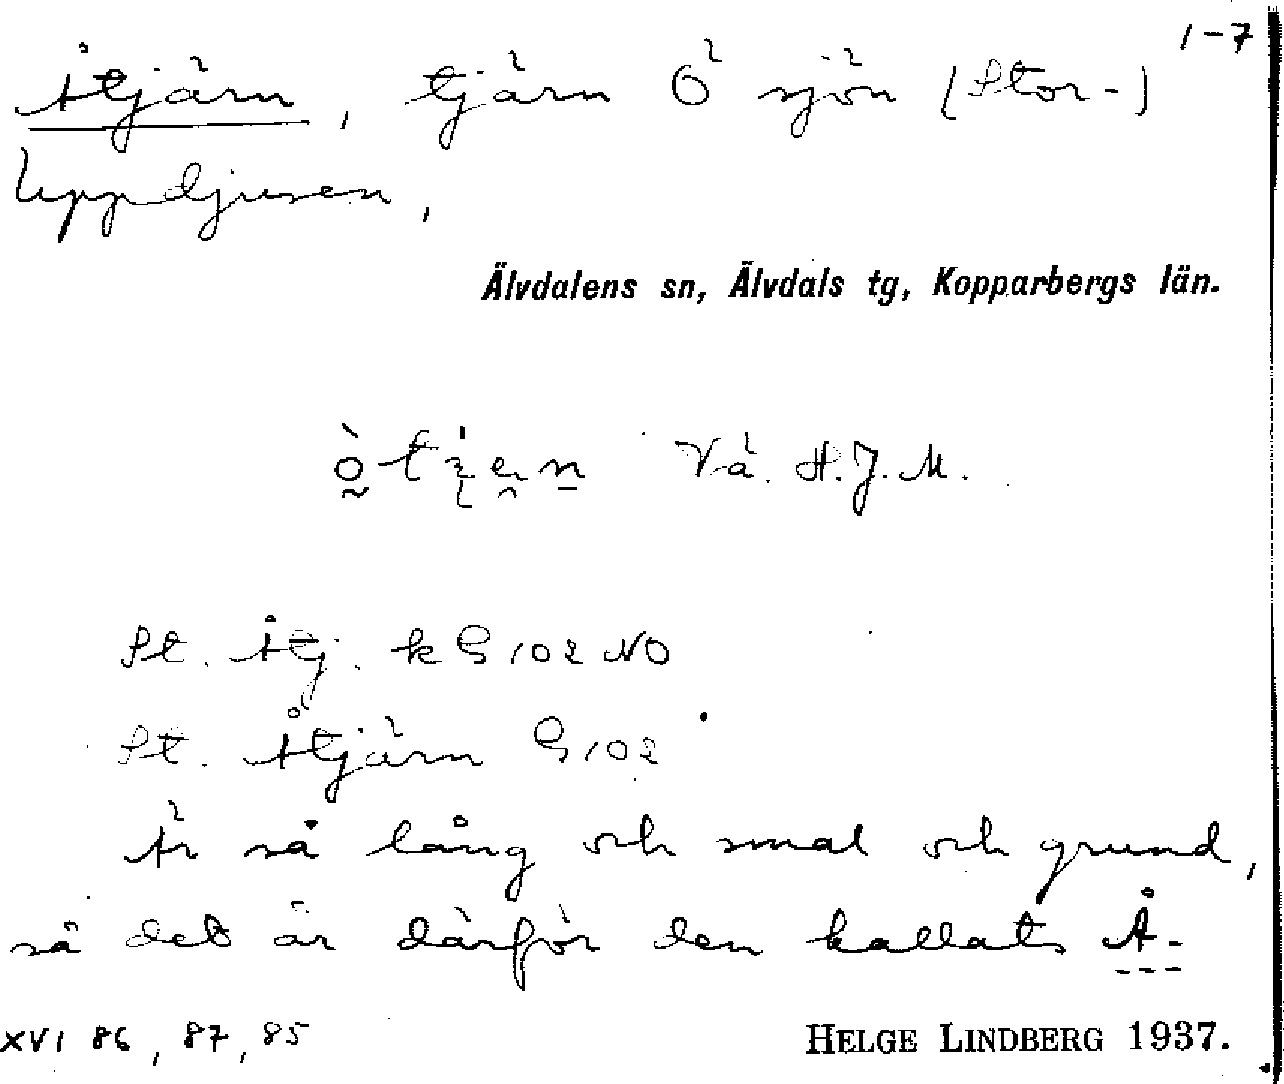 1-7
Åtjärn, tjärn Ö sjön (Stor-)
Uppdjusen,
Älvdalens sn, Älvdals tg, Kopparbergs län.
Vä. H.J.M.
St. Åtj. k G 102 NO
St. Åtjärn G 102
Är så lång och smal och grund,
så det är därför den kallats Å-
XVI 86, 87, 85
HELGE LINDBERG 1937.